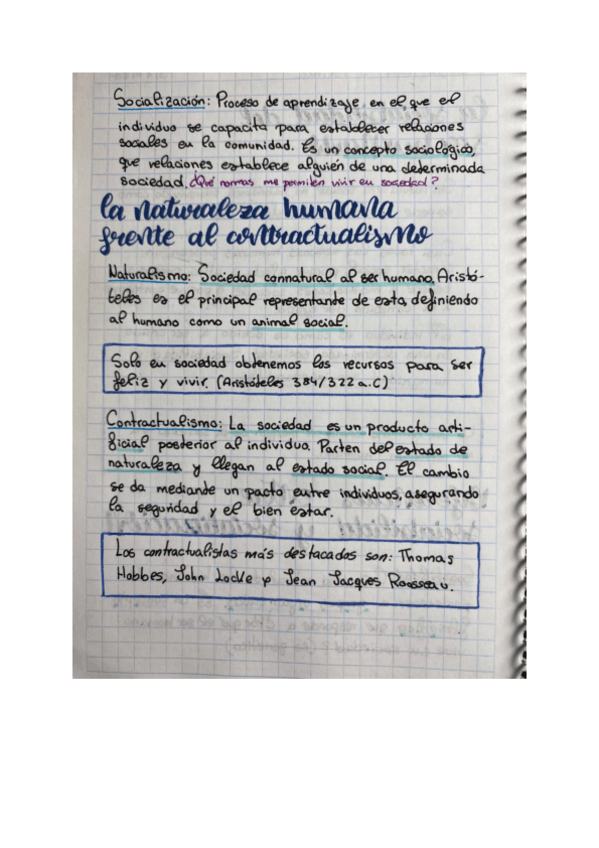 Socialización: Proceso de aprendizaje en el que el
individuo se capacita para establecer relaciones
sociales en la comunidad. Es un concepto sociológico,
que relaciones establece alguién de una determinada
sociedad. ¿Qué normas me permiten vivir en sociedad?
la naturaleza humana
frente al contractualismo
Naturalismo: Sociedad connatural al ser humano. Aristó-
teles es el principal representante de esta, definiendo
al humano como un animal social.
Solo en sociedad obtenemos los recursos para ser
feliz y vivir. (Aristóteles 384/322 a.C)
Contractualismo: La sociedad es un producto arti-
ficial posterior al individuo. Parten del estado de
naturaleza y llegan al estado social. El cambio
se da mediante un pacto entre individuos, asegurando
la seguridad y el bien estar.
Los contractualistas más destacados son: Thomas
Hobbes, John Locke y Jean Jacques